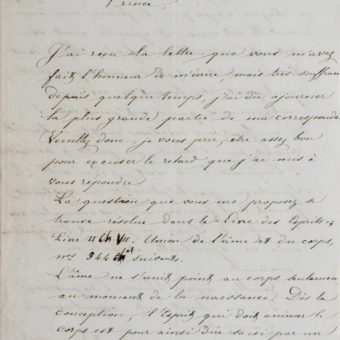 Prince
J'ai reçu la lettre que vous m'avez
fait l'honneur de m'écrire, mais très souffrant
depuis quelque temps, j'ai dû ajourner
la plus grande partie de ma correspondance
Veuillez donc, je vous prie, être assez bon
pour excuser le retard que j'ai mis à
vous répondre.
La question que vous me proposez se
trouve résolue dans le Livre des Esprits,
Livre II Ch VII. Union de l'âme et du corps,
nos 344 et suivants.
L'âme ne s'unit point au corps seulement
au moment de la naissance. Dès la
conception, l'Esprit qui doit animer le
corps est pour ainsi dire saisi par un